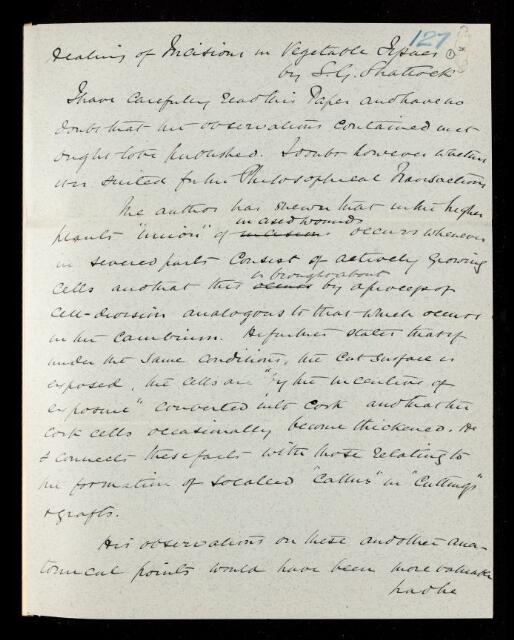 127
Healing of Incisions in Vegetable Tissues
by S.G. Shattock
I have carefully read this Paper and have no
doubt that the observations contained in it
ought to be published. I doubt however whether
it is suited for the Philosophical Transactions
The author has shewn that in the higher
incised wounds
plants "Union" of incisions occurs whenever
in severed parts consist of actively growing
is brought about
cells and that this occurs by a process of
cell-division analogous to that which occurs
in the Cambium. He further states that if
under the same conditions, the cut surface is
exposed, the cells are "by the incentive of
exposure" converted into cork and that the
cork cells occasionally become thickened. He
connects these facts with those relating to
the formation of socalled "Callus" in "Cuttings"
& grafts.
His observations on these and other ana-
tomical points would have been more valuable
had he